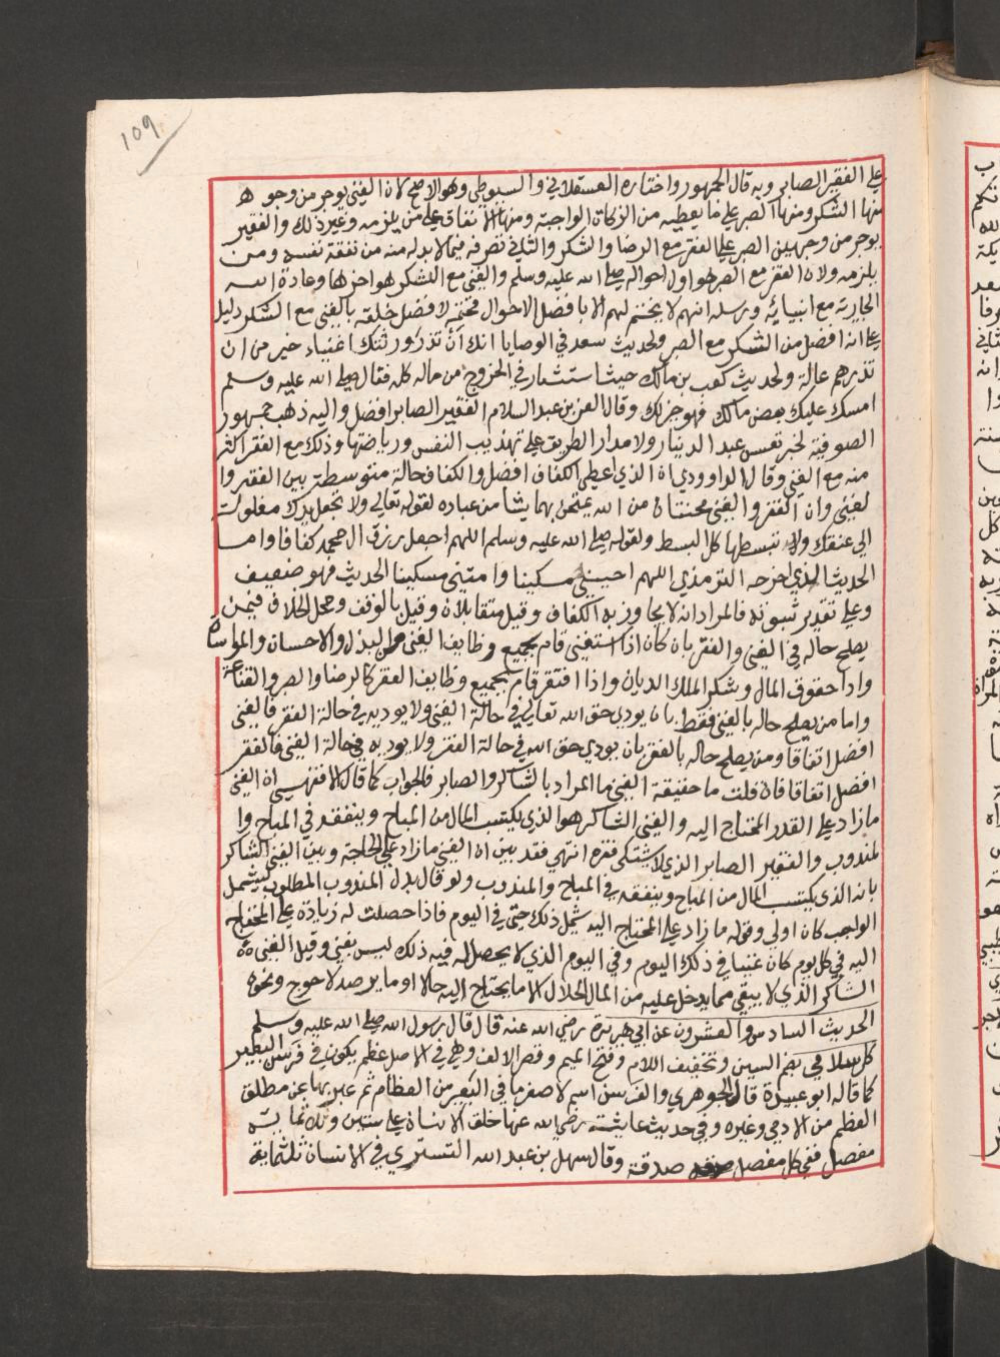 109
علي الفقير الصابر وبه قال الجمهور واختاره العسقلاني والسيوطي وهو الاصح لان الغني يوجر من وجوه
منها الشكر ومنها الصبر علي ما يعطيه من الزكاة الواجبة ومنها الانفاق علي من يلزمه وغير ذلك والفقير
يوجر من وجهين الصبر علي الفقر مع الرضا والشكر والثاني تصرفه فيما لا بد له منه من نفقة نفسه ومن
يلزمه ولان الفقر مع الصبر هو اول احواله صلي الله عليه وسلم والغني مع الشكر هو اخرها وعادة الله
الجارية مع انبيائه ورسله انهم لا يختم لهم الا بافضل الاحوال فختمه لافضل خلقه بالغني مع الشكر دليل
علي انه افضل من الشكر مع الصبر ولحديث سعد في الوصايا انك أن تذر ورثتك اغنياء خير من ان
تذرهم عالة ولحديث كعب بن مالك حيث استشار في الخروج من ماله كله فقال صلي الله عليه وسلم
امسك عليك بعض مالك فهو خير لك وقال العز بن عبد السلام الفقير الصابر افضل واليه ذهب جمهور
الصوفية لخبر تعس عبد الدينار ولا مدار الطريق علي تهذيب النفس ورياضتها وذلك مع الفقر اكثر
منه مع الغني وقال الداوودي ان الذي اعطي الكفاف افضل والكفاف حالة متوسطة بين الفقر وا
لغني وان الفقر والغني محنتان من الله يمتحن بهما يشا من عباده لقوله تعالي ولا تجعل يدك مغلولة
الي عنقك ولا تبسطها كل البسط ولقوله صلي الله عليه وسلم اللهم اجعل رزق ال محمد كفافا واما
الحديث الذي اخرجه الترمذي اللهم احييني مسكينا وامتني مسكينا الحديث فهو ضعيف
وعلي تقدير ثبوته فالمراد انه لا يجاوز به الكفاف وقيل متقابلان وقيل بالوقف ومحل الخلاف فيمن
يصلح حاله في الغني والفقر بان كان اذا استغني قام بجميع وظايف الغني من البذل والاحسان والمواساة
وادا حقوق المال وشكر الملك الديان واذا افتقر قام بجميع وظايف الفقر كالرضا والصبر والقناعة
واما من يصلح حاله بالغني فقط بان يودي حق الله تعالي في حالة الغني ولا يوديه في حالة الفقر فالغني
افضل اتفاقا ومن يصلح حاله بالفقر بان يودي حق الله في حالة الفقر ولا يوديه في حالة الغني فالفقر
افضل اتفاقا فان قلت ما حقيقة الغني وما المراد بالشاكر والصابر فالجواب كما قال الافقهسي ان الغني
ما زاد علي القدر المحتاج اليه والغني الشاكر هو الذي يكتسب المال من المباح وينفقه في المباح وا
لمندوب والفقير الصابر الذي لا يشتكي فقره انتهي فقد بين ان الغني ما زاد علي الحاجة وبين الغني الشاكر
بانه الذي يكتسب المال من المباح وينفقه في المباح والمندوب ولو قال بدل المندوب المطلوب ليشمل
الواجب كان اولي وقوله ما زاد علي المحتاج اليه يشمل ذلك حتي في اليوم فاذا حصلت له زيادة علي المحتاج
اليه في كل يوم كان غنيا في ذلك اليوم وفي اليوم الذي لا يحصل له فيه ذلك ليس بغني وقيل الغني
الشاكر الذي لا يبقي مما يدخل عليه من المال الحلال الا ما يحتاج اليه حالا او ما يرصد لاحوج ونحوه
الحديث السادس والعشرون عن ابي هريرة رضي الله عنه قال قال رسول الله صلي الله عليه وسلم
كل سلامي بضم السين وتخفيف اللام وفتح الميم وقصر الالف وهي في الاصل عظم يكون في فرسن البعير
كما قاله ابو عبيدة قال الجوهري والفرسن اسم لاصغر ما في البعير من العظام ثم عبر بها عن مطلق
العظم من الادمي وغيره وفي حديث عايشة رضي الله عنها خلق الانسان علي ستين وثلاثماية
مفصل ففي كل مفصل صدقة وقال سهل بن عبد الله التستري في الانسان ثلثماية